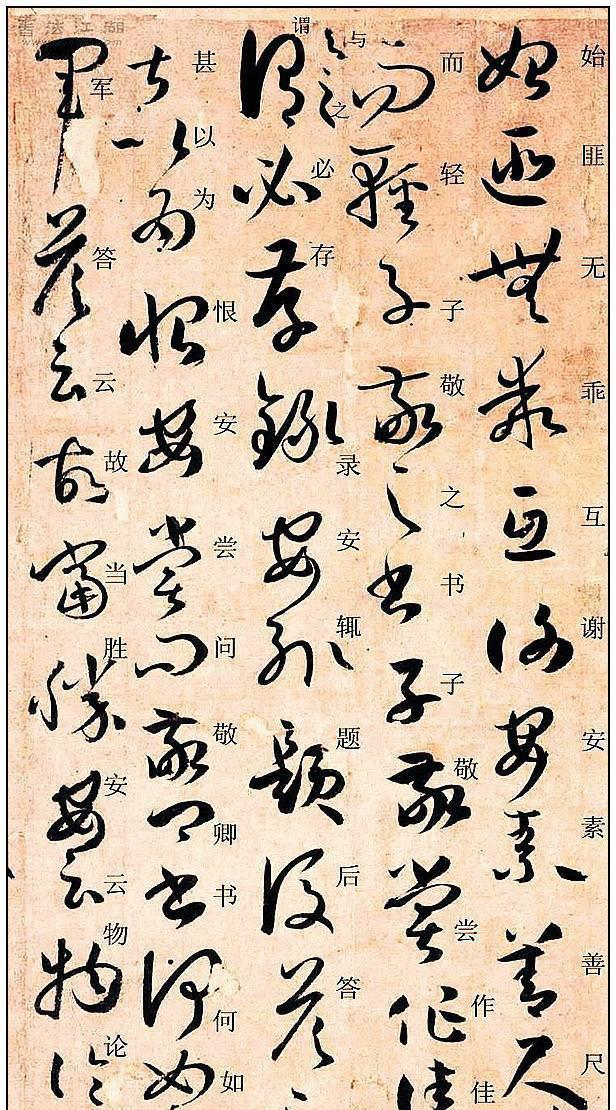 始匪无乖互谢安素善尺
而轻子敬之书子敬尝作佳
与之
谓必存录安辄题后答
甚以为恨安尝问敬卿书何如
军答云故当胜安云物论
书法江湖